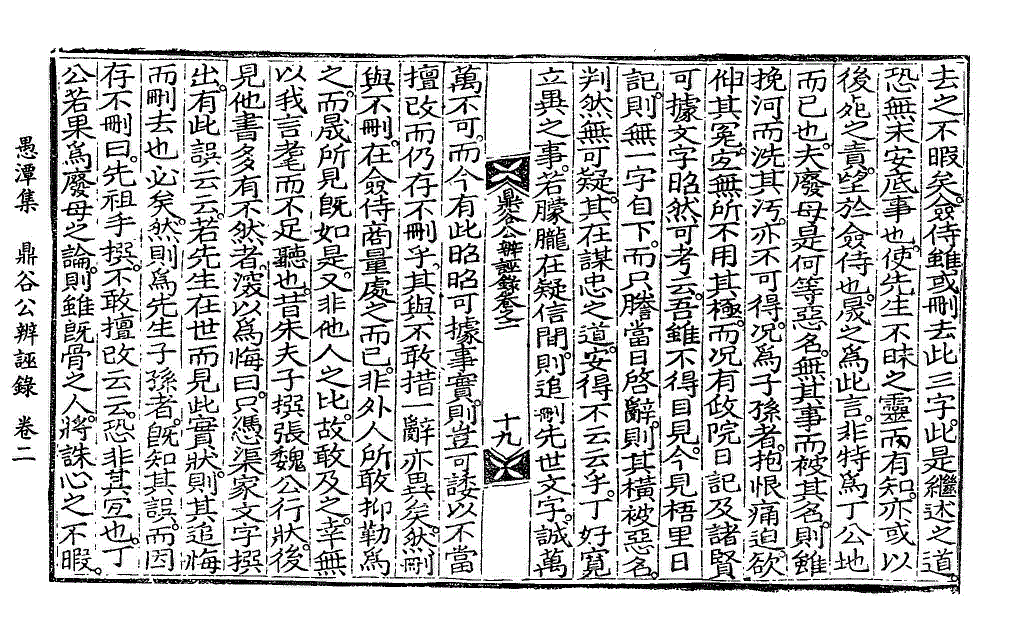 去之不暇矣僉侍雖或刪去此三字此是繼述之道
恐無未安底事也使先生不昧之靈而有知亦或以
後死之責望於僉侍也晟之爲此言非特爲丁公地
而已也夫廢母是何等惡名無其事而被其名則雖
挽河而洗其汚亦不可得况爲子孫者抱恨痛迫欲
伸其冤宜無所不用其極而况有政院日記及諸賢
可據文字昭然可考云吾雖不得目見今見梧里日
記則無一字自下而只謄當日啓辭則其橫被惡名
判然無可疑其在謀忠之道安得不云云乎丁好寬
立異之事若朦朧在疑信間則追刪先世文字誠萬
鼎谷公辨誣錄卷之二
十九
萬不可而今有此昭昭可據事實則豈可諉以不當
擅改而仍存不刪乎其與不敢措一辭亦異矣然刪
與不刪在僉侍商量處之而已非外人所敢抑勒爲
之而晟所見旣如是又非他人之比故敢及之幸無
以我言耄而不足聽也昔朱夫子撰張魏公行狀後
見他書多有不然者深以爲悔曰只憑渠家文字撰
出有此誤云云若先生在世而見此實狀則其追悔
而刪去也必矣然則爲先生子孫者旣知其誤而因
存不刪曰先祖手撰不敢擅改云云恐非其宜也丁
公若果爲廢母之論則雖旣骨之人將誅心之不暇
愚潭集　鼎谷公辨誣錄　卷二